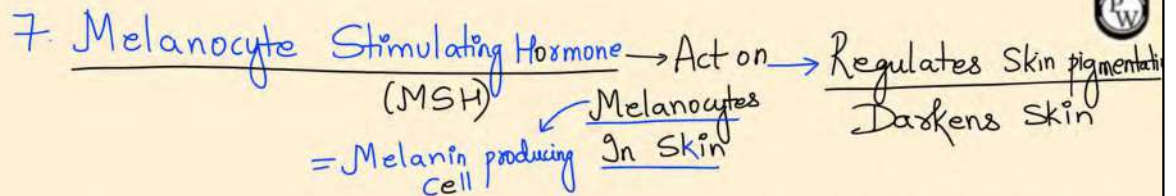 7. Melanocyte Stimulating Hormone → Act on → Regulates Skin pigmentati
(MSH) Melanocytes Darkens Skin
= Melanin producing In Skin
cell
P
W